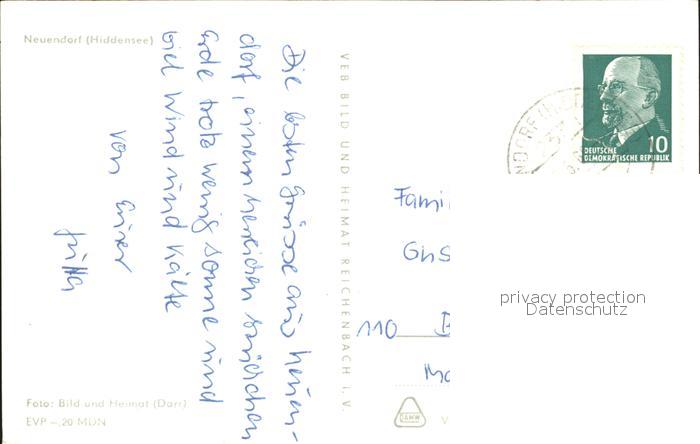 Neuendorf (Hiddensee)
Die besten Grüsse aus Neuen-
dorf, einem herrlichen Stückchen
Erde trotz wenig Sonne und
viel Wind und Kälte
von Eurer
Jutta
Foto: Bild und Heimat (Darr)
EVP -,20 MDN
VEB BILD UND HEIMAT REICHENBACH i. V.
DEUTSCHE
DEMOKRATISCHE REPUBLIK
10
Fami
Gus
110
privacy protection
Datenschutz
DAMW
V